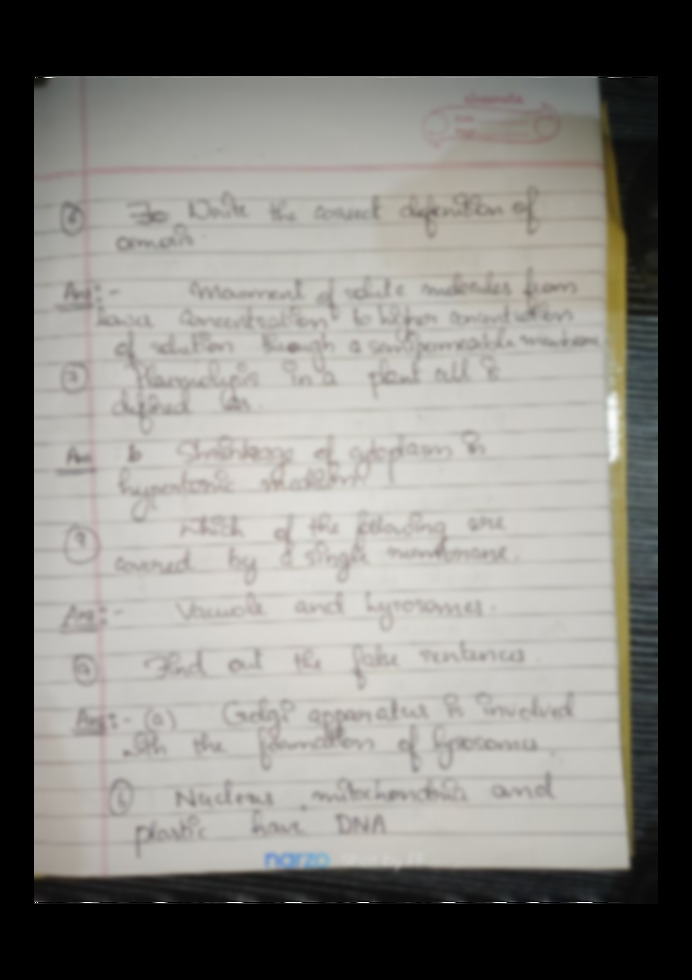 classmate
Write the correct defenition of
Ans:- Movment of solute molecules from
lower concentration to higher concentration
of solution through a semipermeable membrane
Plasmolysis in a plant cell is
defined as.
Ans b Shrinkage of cytoplasm in
hypertonic medium
which of the following are
covered by a single membrane.
Ans:- Vacuole and Lysosomes.
Find out the false sentences
Ans:- (a) Golgi apparatus is involved
with the formation of lysosomes.
Nucleus, mitochondria and
plastic have DNA
narzo Shot by